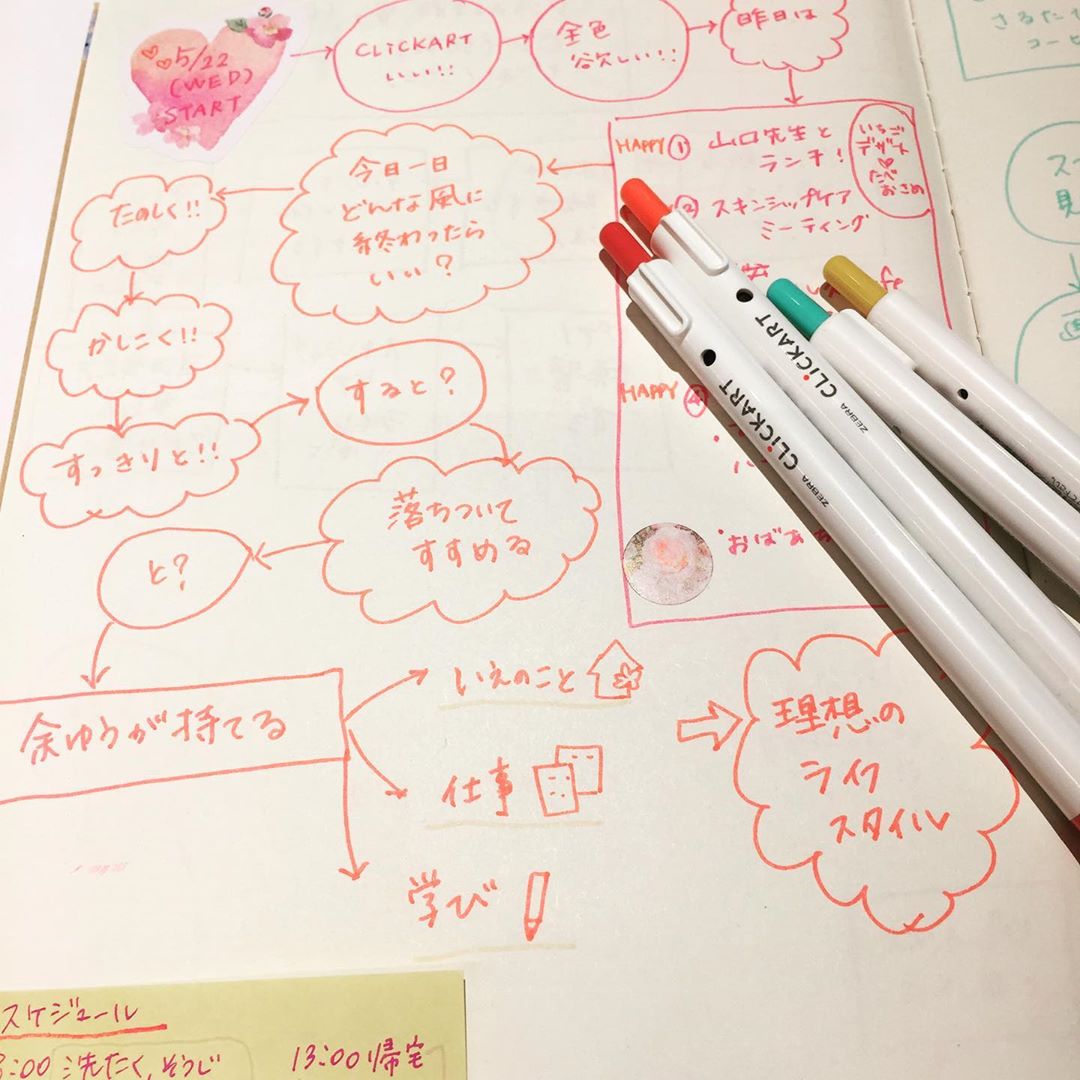 5/22
(WED)
START
CLiCKART
いい!!
全色
欲しい!!
昨日は
HAPPY ① 山口先生と
ランチ!
いちご
デザート
たべ
おさめ
② スキンシップケア
ミーティング
HAPPY ④
・おばあ
今日一日
どんな風に
終わったら
いい?
たのしく!!
かしこく!!
すっきりと!!
すると?
落ちついて
すすめる
と?
余ゆうが持てる
いえのこと
仕事
学び
理想の
ライフ
スタイル
スケジュール
:00 洗たく,そうじ
13:00 帰宅
ZEBRA CLiCKART
ZEBRA CLiCKART